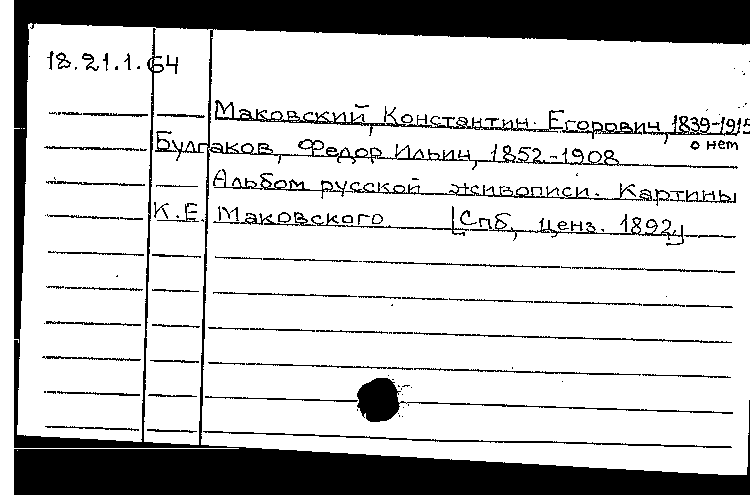 18.21.1.64
Маковский, Константин Егорович, 1839-1915
о нем
Булгаков, Федор Ильич, 1852-1908
Альбом русской живописи. Картины
К.Е. Маковского [Спб, ценз. 1892]